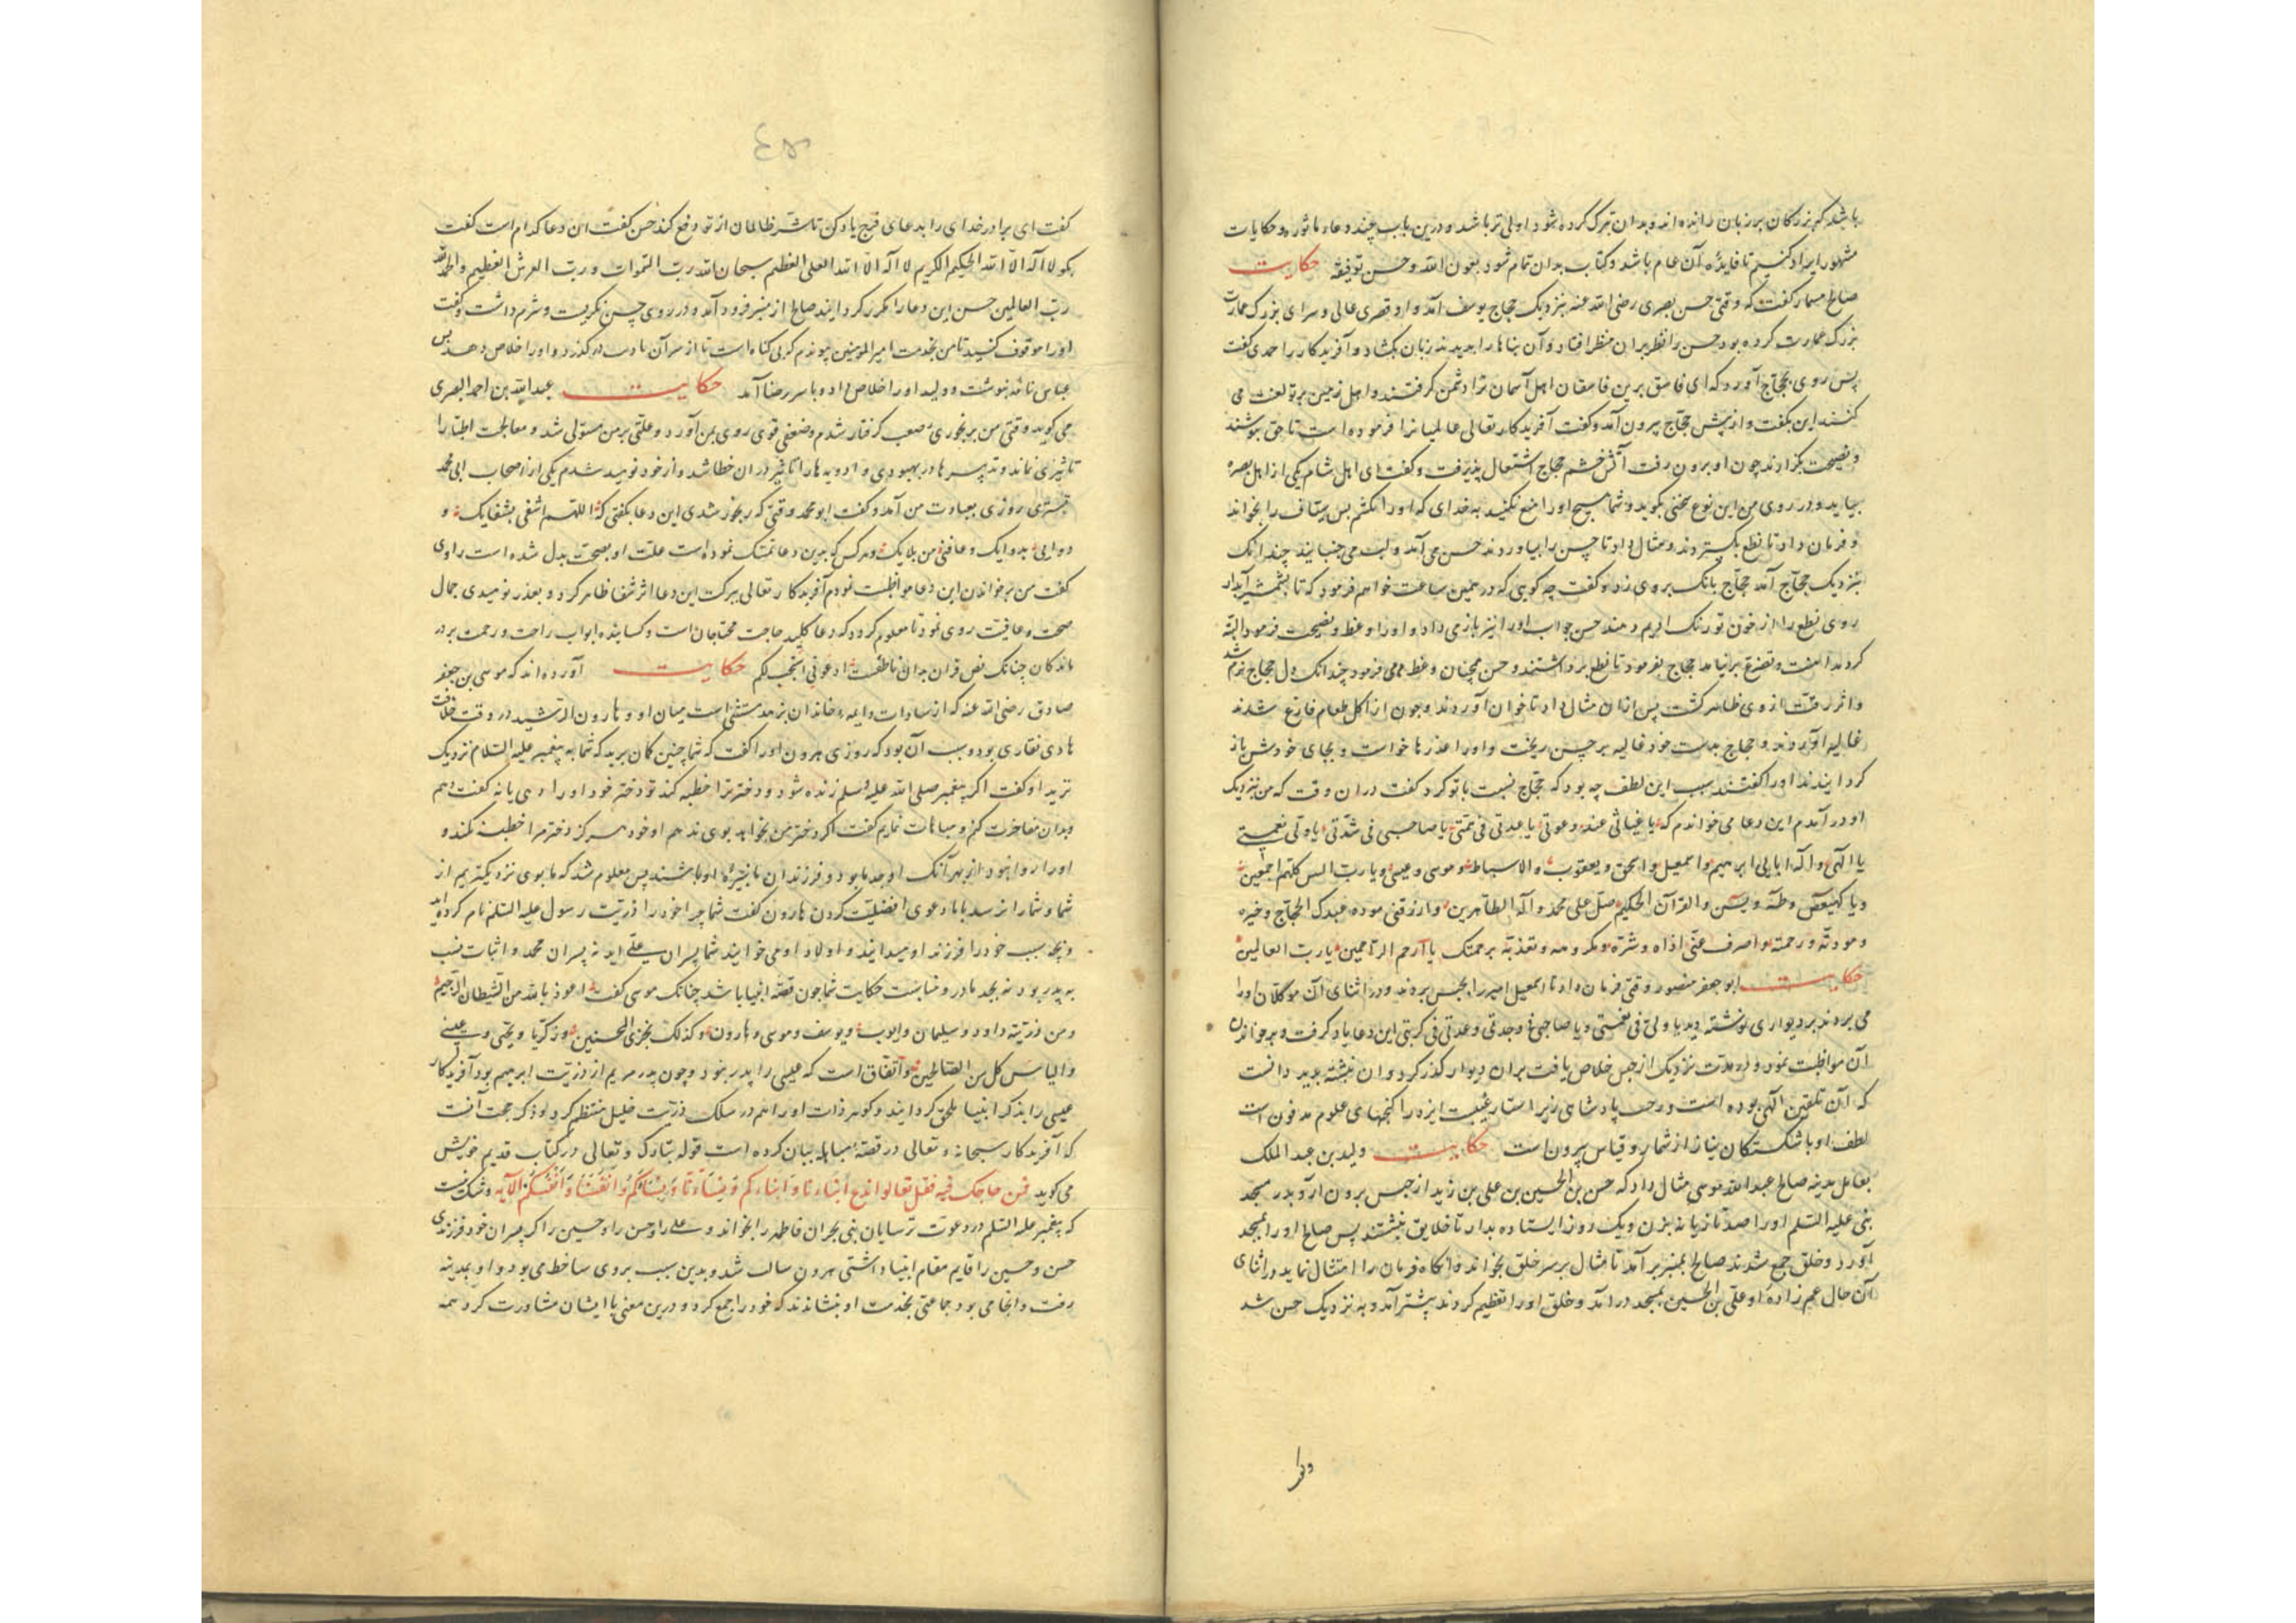 باشد که بزرگان بر زبان رانده‌اند و بدان تبرک کرده شود اولی‌تر باشد و درین باب چند دعاء ماثوره و حکایات
مشهور ایراد کنیم تا فایده آن عام باشد و کتاب بدان تمام شود بعون الله و حسن توفیقه حکایت
صالح مسمار گفت که وقتی حسن بصری رضی الله عنه بنزدیک حجاج یوسف آمد و او قصری عالی و سرای بزرگ عمارت
بزرگ عمارت کرده بود حسن را نظر بران منظر افتاد و آن بناها را بدید زبان بکشاد و آفریدکار را حمدی گفت
پس روی بحجاج آورد که ای فاسق برین فاسقان اهل آسمان ترا دشمن گرفتند و اهل زمین بر تو لعنت می
کنند این بگفت و از پیش حجاج بیرون آمد و گفت آفریدکار تعالی عالمیانرا فرموده است تا حق نپوشند
و نصیحت بگزارند چون او برون رفت آتش خشم حجاج اشتعال پذیرفت و گفت ای اهل شام یکی از اهل بصره
بیاید و در روی من این نوع سخنی بگوید و شما هیچ او را منع نکنید به خدای که او را بکشم پس سیاف را بخواند
و فرمان داد تا نطع بگستردند و مثال داد تا حسن را بیاوردند حسن می‌آمد و لب می‌جنبانید چندانک
بنزدیک حجاج آمد حجاج بانگ بروی زد و گفت چه گویی که در همین ساعت خواهم فرمود که تا بشمشیر آبدار
روی نطع را از خون تو رنگ دهند حسن جواب او را نیز باز می‌داد و او را وعظ و نصیحت فرمود البته
حجاج بفرمود تا نطع برداشتند و حسن همچنان وعظ می‌فرمود چندانک دل حجاج نرم شد
و اثر رقت از وی ظاهر گشت پس ازان مثال داد تا خوان آوردند و چون از اکل طعام فارغ شدند
غالیه آوردند و حجاج بدست خود غالیه بر حسن ریخت و او را عذرها خواست و بجای خودش باز
گردانیدند او را گفتند سبب این لطف چه بود که حجاج نسبت با تو کرد گفت دران وقت که من بنزدیک
او درآمدم این دعا می‌خواندم که یا غیاثی عند دعوتی یا عدتی فی یا صاحبی فی شدتی یا ولی نعمتی
یا الهی و اله آبایی ابرهیم و اسمعیل و اسحق و یعقوب و الاسباط و موسی و عیسی و یا رب الناس کلهم اجمعین
و یا کهیعص و طه و یس و القرآن الحکیم صل علی محمد و آله الطاهرین و ارزقنی موده عبدک الحجاج و خیره
و مودته و رحمته و اصرف عنی اذاه و شره و مکروهه برحمتک یا ارحم الراحمین یا رب العالمین
حکایت ابو جعفر منصور وقتی فرمان داد تا اسمعیل را بحبس بردند و در اثنای آن موکلان او را
می‌بردند بر دیواری نوشته دید یا ولی فی نعمتی و یا صاحبی فی وحدتی و عدتی فی کربتی این دعا یاد گرفت و بر خواندن
آن مواظبت نمود و در مدت نزدیک از حبس خلاص یافت بران دیوار گذر کرد و ان نبشته ندید دانست
که آن تلقین الهی بوده است و رحمت پادشاهی زیر استار غیبت ایزد را گنجهای علوم مدفون است
لطف او با شکستگان نیاز از شمار و قیاس بیرون است حکایت ولید بن عبد الملک
بعامل مدینه صالح عبد الله موسی مثال داد که حسن بن الحسین بن علی بن زید از حبس برون آر و بدر مسجد
نبی علیه السلم او را صد تازیانه بزن و یک روز ایستاده بدار تا خلایق ببینند پس صالح او را بمسجد
آورد و خلق جمع شدند صالح بمنبر برآمد تا مثال بر سر خلق بخواند و آنگاه فرمان را امتثال نماید در اثنای
آن حال عم زاده او علی بن الحسین بمسجد درآمد و خلق او را تعظیم کردند پیشتر آمد و به نزدیک حسن شد
گفت ای برادر خدای را بدعای فرج یاد کن تا شر ظالمان از تو دفع کند حسن گفت ان دعا کدام است گفت
بگو لا اله الا الله الحکیم الکریم لا اله الا الله العلی العظیم سبحان الله رب السموات و رب العرش العظیم و الحمد لله
رب العالمین حسن این دعا را مکرر گردانید صالح از منبر فرود آمد و در روی حسن نگریست و شرم داشت و گفت
او را موقوف کنید تا من بخدمت امیر المومنین بنویسم که بی گناه است تا از سر آن بگذرد و او را خلاص دهد پس
عباس نامه نبوشت و ولید او را خلاص داد و با سر رضا آمد حکایت عبد الله بن احمد البصری
می‌گوید وقتی من برنجوری صعب گرفتار شدم و ضعفی قوی روی بمن آورد و علتی بر من مستولی شد و معالجت اطبا را
تاثیری نماند و تدبیرها در بهبودی و ادویه‌ها را تاثیر دران خطا شد و از خود نومید شدم یکی از اصحاب ابی محمد
تستری روزی بعیادت من آمد و گفت ابو محمد وقتی که رنجور شدی این دعا بگفتی که اللهم اشفنی بشفایک و
داونی بدوایک و عافنی من بلایک و هر کس که بدین دعا تمسک نموده است علت او بصحت بدل شده است راوی
گفت من بر خواندن این دعا مواظبت نمودم آفریدکار تعالی ببرکت این دعا اثر شفا ظاهر کرد و بعد نومیدی جمال
صحت و عافیت روی نمود تا معلوم گردد که دعا کلید حاجت محتاجان است و گشاینده ابواب راحت و رحمت بر در
ماندگان چنانک نص قران بدان ناطقست ادعونی استجب لکم حکایت آورده‌اند که موسی بن جعفر
صادق رضی الله عنه که از سادات و ایمه خاندان بزهد مستثنی است میان او و هارون الرشید در وقت خلافت
هادی نقاری بود و سبب آن بود که روزی هرون او را گفت که شما چنین گمان برید که شما به پیغمبر علیه السلام نزدیک
ترید او گفت اگر پیغمبر صلی الله علیه و سلم زنده شود و دختر ترا خطبه کند تو دختر خود او را دهی یا نه گفت دهم
و بدان مفاخرت کنم و مباهات نمایم گفت اگر دختر من بخواهد بوی ندهم او خود هرگز دختر مرا خطبه نکند و
او را روا نبود از بهر آنک او جد ما بود و فرزندان ما نبیره او باشند پس معلوم شد که ما بوی نزدیکتریم از
شما و شما را نرسد با ما دعوی افضلیت کردن هارون گفت شما چرا خود را ذریت رسول علیه السلم نام کرده‌اید
و بچه سبب خود را فرزند او میدانید و اولاد او می‌خوانید شما پسران علی اید نه پسران محمد و اثبات نسب
به پدر بود نه بجد مادر و مناسبت حکایت شما چون قصه انبیا باشد چنانک موسی گفت اعوذ بالله من الشیطان الرجیم
و من ذریته داود و سلیمان و ایوب و یوسف و موسی و هارون و کذلک نجزی المحسنین و زکریا و یحیی و عیسی
و الیاس کل من الصالحین و اتفاق است که عیسی را پدر نبود و چون پدر مریم از ذریت ابرهیم بود آفریدکار
عیسی را بذکر انبیا ملحق گردانید و گوهر ذات او را هم در سلک ذریت خلیل منتظم کرد و دیگر حجت آنست
که آفریدکار سبحانه و تعالی در قصه مباهله بیان کرده است قوله تبارک و تعالی در کتاب قدیم خویش
می‌گوید فمن حاجک فیه فقل تعالوا ندع ابناءنا و ابناءکم و نساءنا و نساءکم و انفسنا و انفسکم الآیه و شک نیست
که پیغمبر علیه السلم در دعوت ترسایان بنی نجران فاطمه را بخواند و علی را و حسن را و حسین را که پسران خود فرزندی
حسن و حسین را قایم مقام ابنیا داشتی هرون ساکت شد و بدین سبب بروی ساخط می‌بود و او بمدینه
رفت و انجا می‌بود جماعتی بخدمت او بنشاندند که خود را جمع کرد و درین معنی با ایشان مشاورت کرد همه